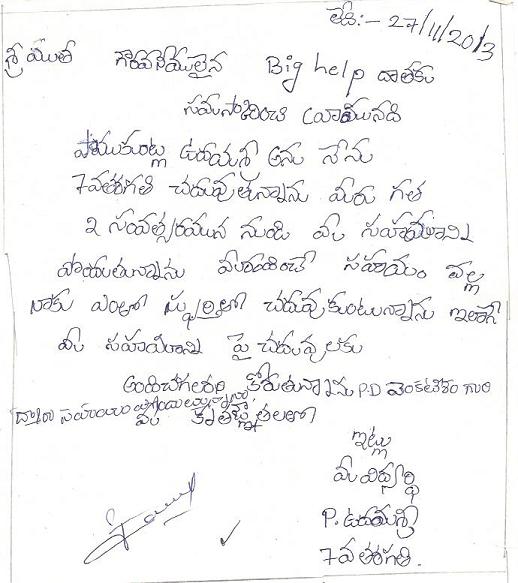 తేది:- 27/11/2013
శ్రీ యుత గౌరవనీయులైన Big help దాతకు
నమస్కరించి వ్రాయునది
పాముకుంట్ల ఉదయశ్రీ అను నేను
7వతరగతి చదువుతున్నాను మీరు గత
2 సంవత్సరముల నుండి మీ సహాయాన్ని
పొందుతున్నాను మీరందించే సహాయం వల్ల
నాకు ఎంతో స్ఫూర్తితో చదువుకుంటున్నాను ఇలాగే
మీ సహాయాన్ని పై చదువులకు
అందించగలరని కోరుతున్నాను P.D వెంకటేశం గారి
ద్వారా సహాయం
మీ కృతజ్ఞతలతో
ఇట్లు
మీ విద్యార్థి
P. ఉదయశ్రీ
7వ తరగతి.